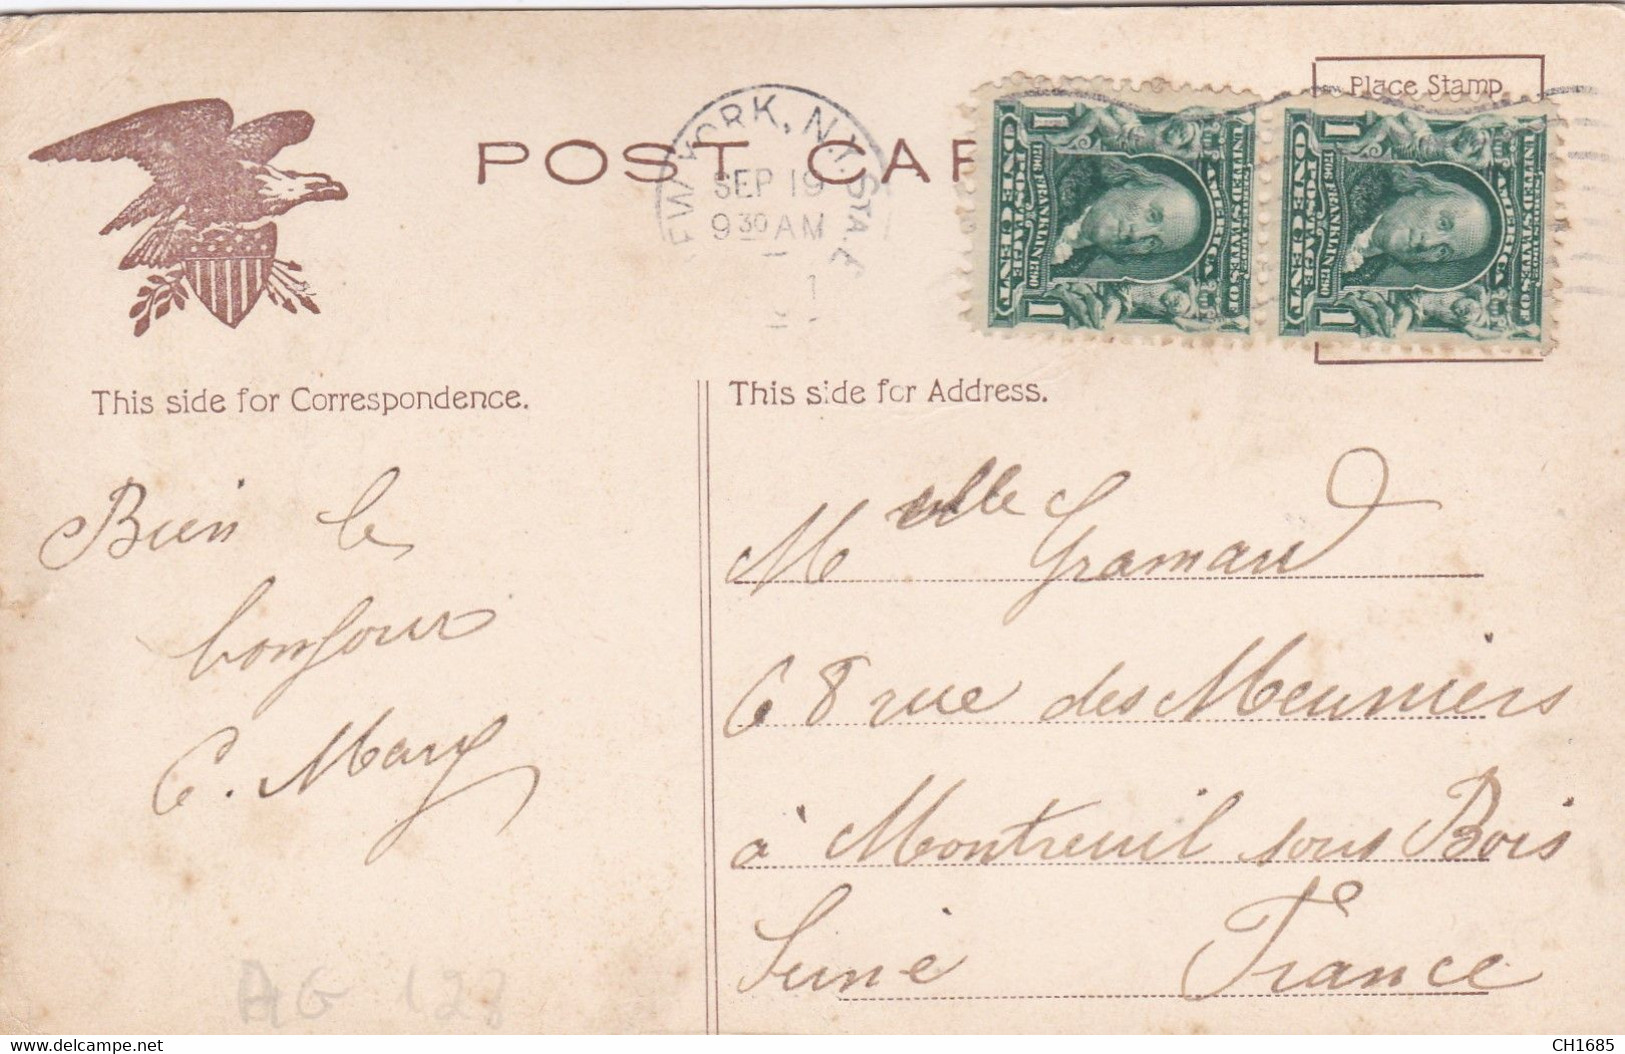 POST CAR
Place Stamp
NEW YORK, N.Y. STA.
SEP 19
9 30 AM
1
UNITED STATES OF
AMERICA
1706 FRANKLIN 1790
POSTAGE
ONE CENT
1 1
UNITED STATES OF
AMERICA
1706 FRANKLIN 1790
POSTAGE
ONE CENT
1 1
This side for Correspondence.
This side for Address.
Bien le
bonjour
C. Mary
Melle Gramard
68 rue des Meuniers
à Montreuil sous Bois
Seine France
AG 128
delcampe.net
CH1685